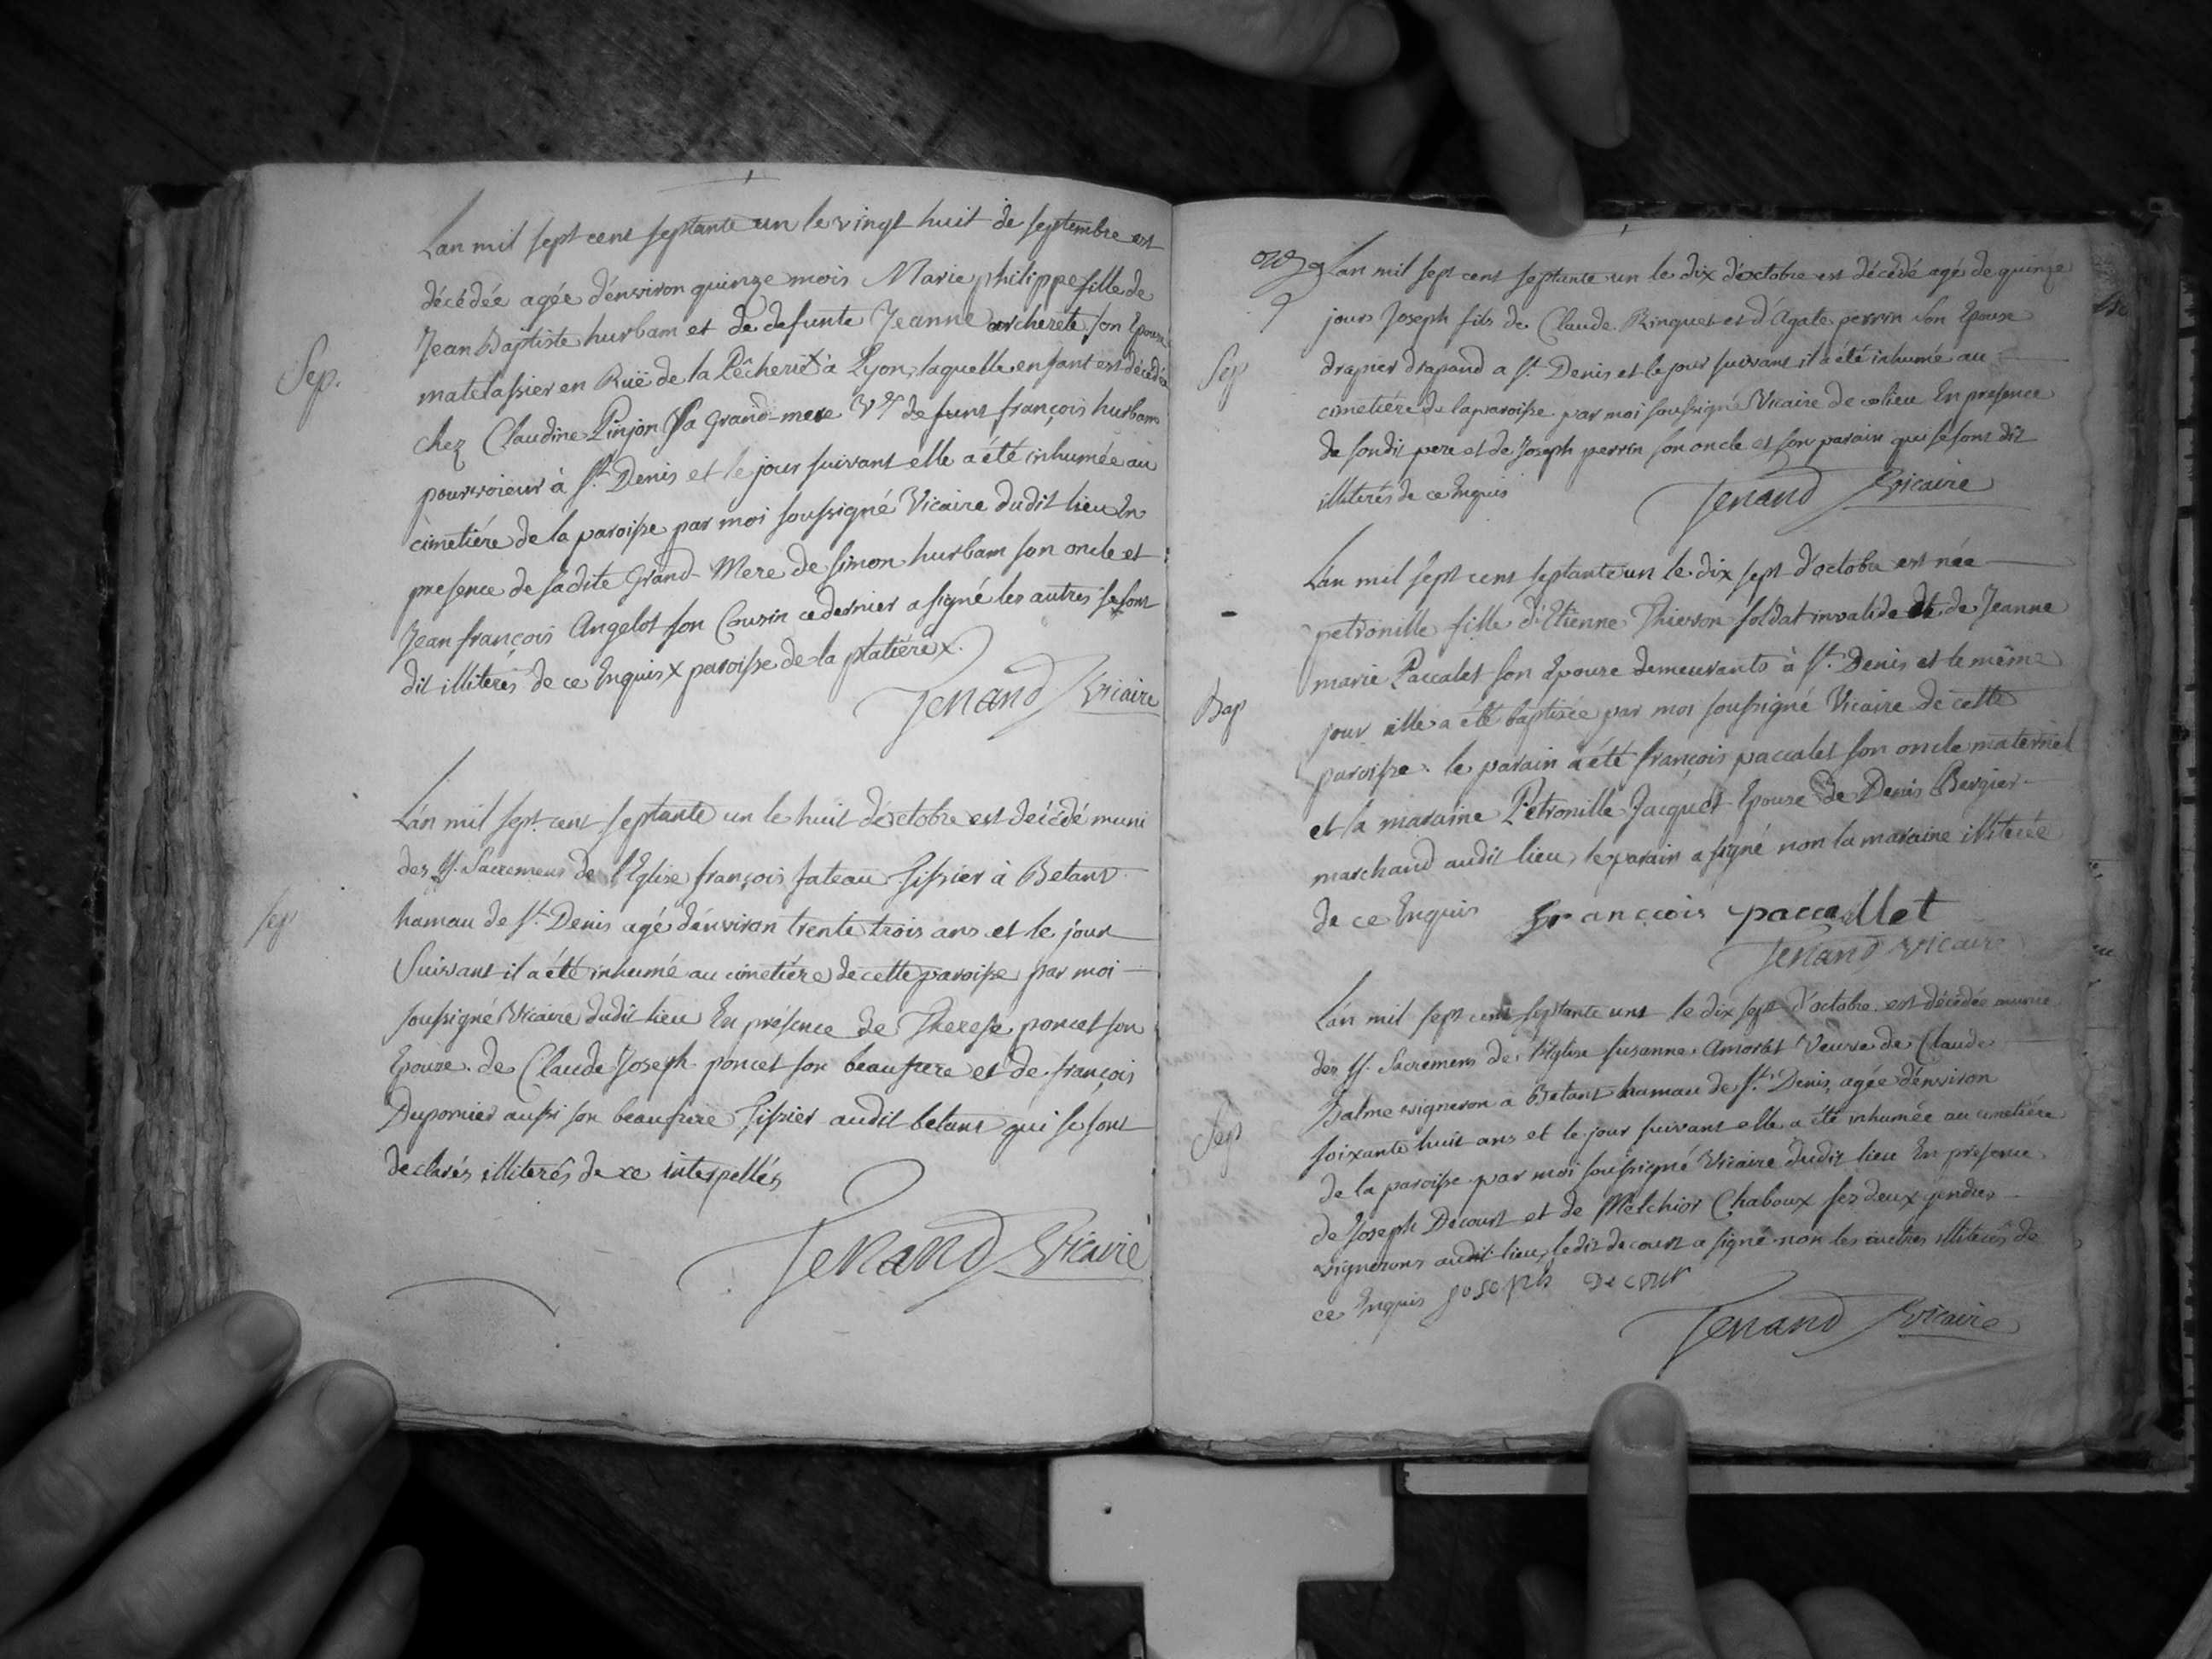 Sep.
L'an mil sept cent septante un le vingt huit de septembre est
décédée agée d'environ quinze mois Marie philippe fille de
Jean Baptiste hurbam et de defunte Jeanne archerete son Epouse
matelassier en Ruë de la Pêcherie X à Lyon, laquelle enfant est décédée
chez Claudine Pinjon sa Grand-mere Vve de funt françois hurbam
pourvoieur à St. Denis et le jour suivant elle a été inhumée au
cimetiére de la paroisse par moi soussigné Vicaire dudit lieu En
presence de sadite Grand-Mere de simon hurbam son oncle et
Jean françois Angelot son Cousin ce dernier a signé les autres se sont
dit illiterés de ce Enquis X paroisse de la platiére X.
Tenand Vicaire
Sep
L'an mil sept cent septante un le huit d'octobre est décédé muni
des SS. Sacremens de l'Eglise françois fateau Tissier à Betant
hamau de St. Denis agé d'environ trente trois ans et le jour
suivant il a été inhumé au cimetiére de cette paroisse par moi
soussigné Vicaire dudit lieu En présence de Therese poncet son
Epouse de Claude Joseph poncet son beaufrere et de françois
Dupornier aussi son beaufrere Tissier audit betant qui se sont
declarés illiterés de ce interpellés
Tenand Vicaire
L'an mil sept cent septante un le dix d'octobre est décédé agé de quinze
jours Joseph fils de Claude Ringuet et d'Agate perrin son Epouse
Sep
drapier drapand a St. Denis et le jour suivant il a été inhumé au
cimetiére de la paroisse par moi soussigné Vicaire de ce lieu En presence
de sondit pere et de Joseph perrin son oncle et son parain qui se sont dit
illiterés de ce Enquis
Tenand Vicaire
L'an mil sept cent septante un le dix sept d'octobre est née
petronille fille d'Etienne Thierson soldat invalide et de Jeanne
marie Paccalet son Epouse demeurants à St. Denis et le même
Bap
jour elle a été baptisée par moi soussigné Vicaire de cette
paroisse. le parain a été françois paccalet son oncle maternel
et la maraine Petronille Jacquet Epouse de Denis Bergier
marchand audit lieu, le parain a signé non la maraine illiterée
de ce Enquis françcois paccallet
Tenand Vicaire
L'an mil sept cent septante un le dix sept d'octobre est décédée munie
des SS. Sacremens de l'Eglise susanne Amorat Veuve de Claude
Balme vigneron a Betant hamau de St. Denis, agée d'environ
Sep
soixante huit ans et le jour suivant elle a été inhumée au cimetiére
de la paroisse par moi soussigné Vicaire dudit lieu En presence
de Joseph Decourt et de Melchior Chaboux ses deux gendres
vignerons audit lieu, ledit decourt a signé non les autres illiterés de
ce Enquis Joseph decour
Tenand Vicaire